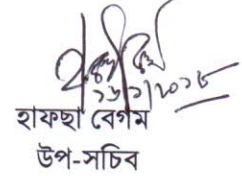 ১৬/১/২০১৮
হাফছা বেগম
উপ-সচিব